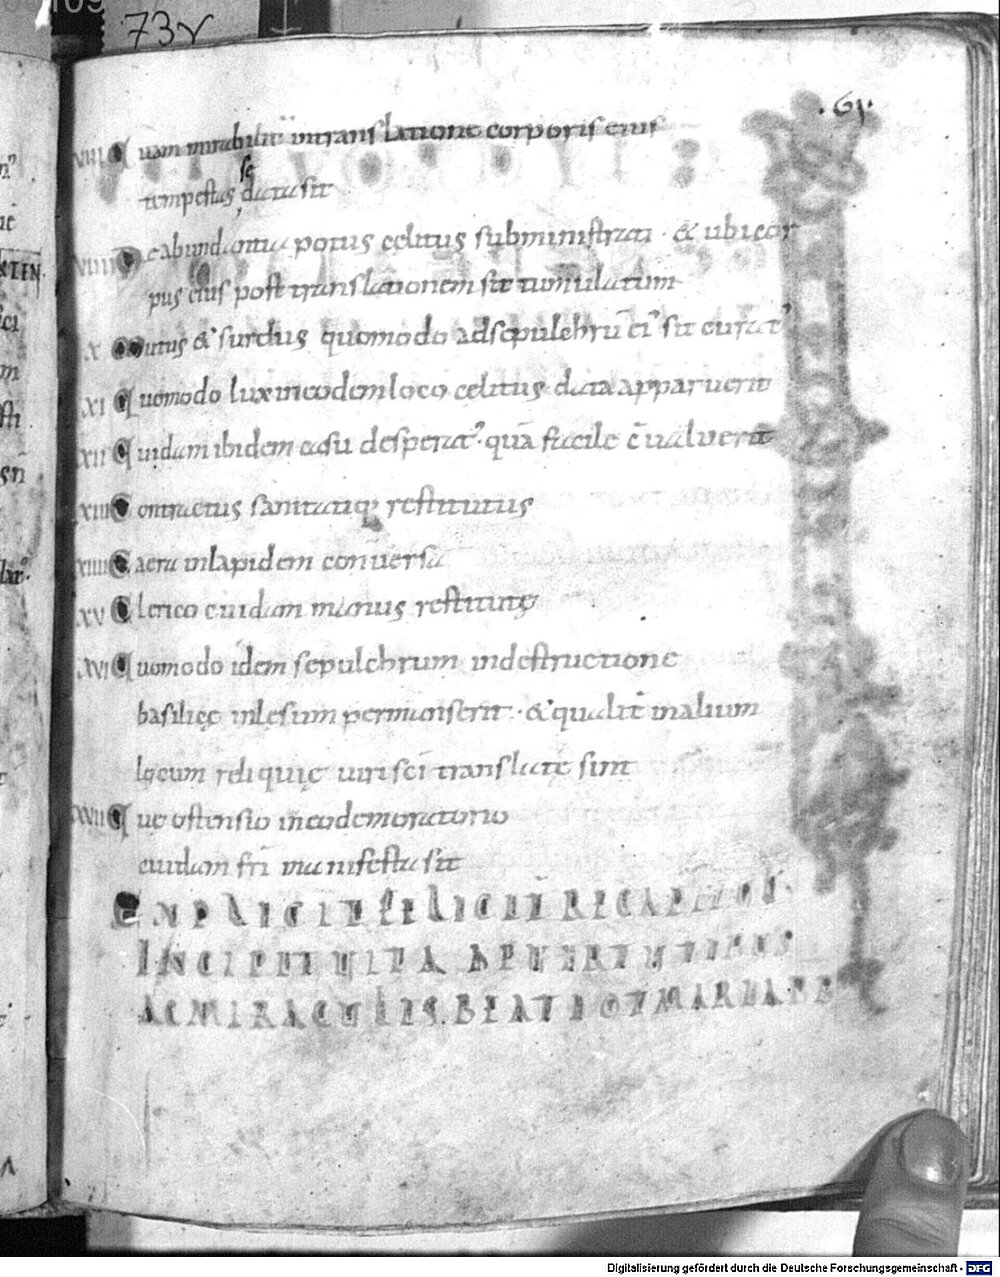 73v
.61.
VIII Quam mirabilit̄ in translatione corporis eius
tempestas sedata sit
VIIII De abundantia potus celitus subministrati · & ubi cor
pus eius post translationem sit tumulatum
X Mutus & surdus quomodo ad sepulchrū ei' sit curat'
XI Quomodo lux in eodem loco celitus data apparuerit
XII Quidam ibidem casu desperat' quā facile c̄ualuerit
XIII Contractus sanitatiq; restitutus
XIIII Caera in lapidem conuersa
XV Clerico cuidam manus restitutę
XVI Quomodo idem sepulchrum in destructione
basilicę inlesum permanserit · & qualit̄ in alium
locum reliquię uiri sc̄i translatę sint
XVII Que ostensio in eodem oratorio
cuidam fr̄i manifesta sit
EXPLICIT
INCIPIT VITA
AC MIRACULIS BEATI OTMARI ABB
Digitalisierung gefördert durch die Deutsche Forschungsgemeinschaft - DFG